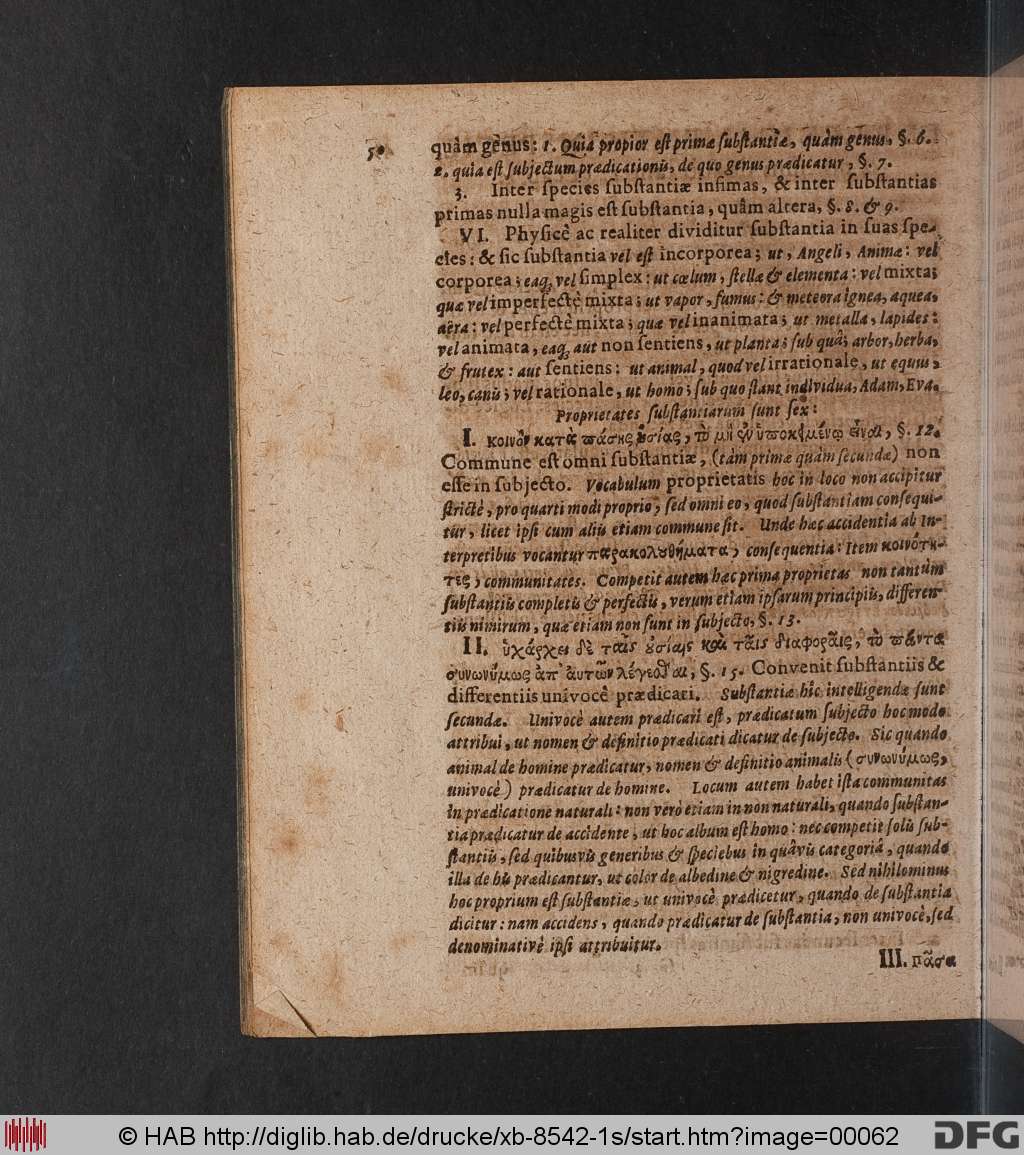 50
quàm genus: 1. Quia propior est primæ substantiæ, quàm genus, §. 6.
2. quia est subjectum prædicationis, de quo genus prædicatur, §. 7.
3. Inter species substantiæ infimas, & inter substantias
primas nulla magis est substantia, quâm altera, §. 8. & 9.
VI. Physicè ac realiter dividitur substantia in suas spe-
cies: & sic substantia vel est incorporea; ut, Angeli, Animæ: vel
corporea; eaq; vel simplex: ut cœlum, stellæ & elementa: vel mixta;
quæ vel imperfectè mixta; ut vapor, fumus: & meteora ignea, aquea,
aëra: vel perfectè mixta; quæ vel inanimata; ut metalla, lapides:
vel animata, eaq; aut non sentiens, ut planta; sub quâ; arbor, herba,
& frutex: aut sentiens: ut animal, quod vel irrationale, ut equus,
leo, canis; vel rationale, ut homo; sub quo stant individua, Adam, Eva.
Proprietates substantiarum sunt sex:
I. κοινὸν κατὰ πάσης ὀσίας, τὸ μὴ ἐν ὑποκειμένῳ εἶναι, §. 12.
Commune est omni substantiæ, (tàm primæ quàm secundæ) non
esse in subjecto. Vocabulum proprietatis hoc in loco non accipitur
strictè, pro quarti modi proprio, sed omni eo, quod substantiam consequi-
tur, licet ipsi cum aliis etiam commune sit. Unde hæc accidentia ab In-
terpretibus vocantur παρακολουθήματα, consequentia: Item κοινότη-
τες, communitates. Competit autem hæc prima proprietas non tantùm
substantiis completis & perfectis, verum etiam ipsarum principiis, differen-
tiis nimirum, quæ etiam non sunt in subjecto, §. 13.
II. ὑπάρχει δὲ ταῖς οὐσίαις καὶ ταῖς διαφοραῖς, τὸ πάντα
συνωνύμως ἀπ' αὐτῶν λέγεσθαι, §. 15. Convenit substantiis &
differentiis univocè prædicari. Substantiæ hîc intelligendæ sunt
secundæ. Univocè autem prædicari est, prædicatum subjecto hoc modo
attribui, ut nomen & definitio prædicati dicatur de subjecto. Sic quando
animal de homine prædicatur, nomen & definitio animalis (συνωνύμως,
univocè) prædicatur de homine. Locum autem habet ista communitas
in prædicatione naturali: non verò etiam in non naturali, quando substan-
tia prædicatur de accidente, ut hoc album est homo: nec competit solis sub-
stantiis, sed quibusvis generibus & speciebus in quâvis categoriâ, quando
illa de his prædicantur, ut color de albedine & nigredine. Sed nihilominus
hoc proprium est substantiæ, ut univocè prædicetur, quando de substantia
dicitur: nam accidens, quando prædicatur de substantia, non univocè, sed
denominativè ipsi attribuitur.
III. πᾶσα
© HAB http://diglib.hab.de/drucke/xb-8542-1s/start.htm?image=00062
DFG